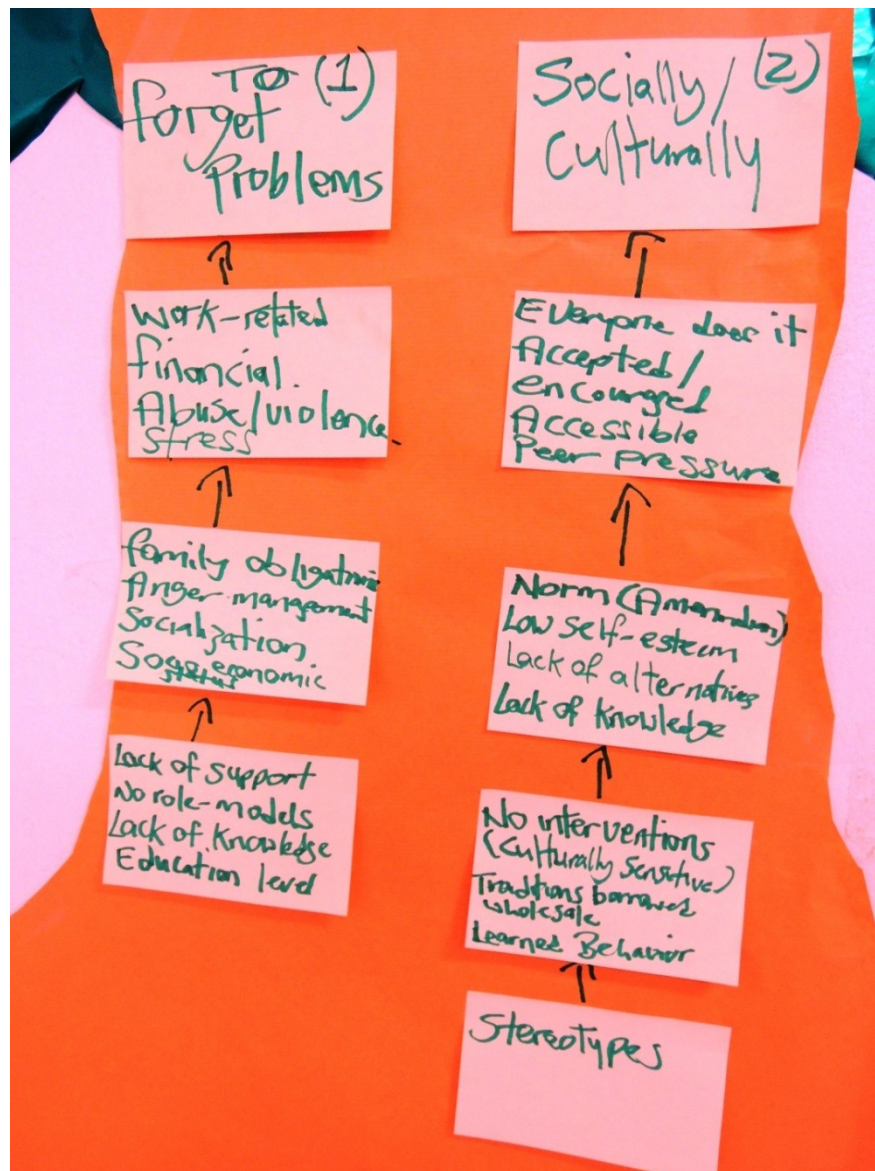 TO (1)
forget
Problems
Work-related
financial.
Abuse/violence
stress
family obligations
Anger management
Socialization
economic
status
Lack of support
No role-models
Lack of Knowledge
Education level
Socially/ (2)
Culturally
Everyone does it
Accepted/
encouraged
Accessible
Peer pressure
Norm
Low self-esteem
Lack of alternatives
Lack of Knowledge
No interventions
(Culturally Sensitive)
Traditions borrowed
wholesale
Learned Behavior
Stereotypes